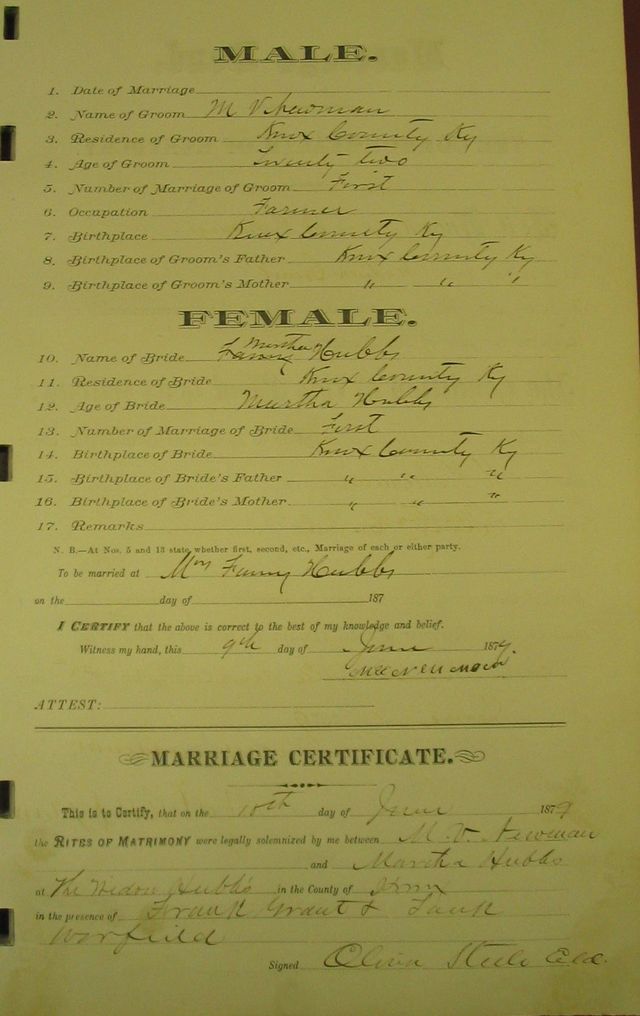 MALE.
1. Date of Marriage
2. Name of Groom M V Newman
3. Residence of Groom Knox County Ky
4. Age of Groom Twenty two
5. Number of Marriage of Groom First
6. Occupation Farmer
7. Birthplace Knox County Ky
8. Birthplace of Groom's Father Knox County Ky
9. Birthplace of Groom's Mother " " "
FEMALE.
10. Name of Bride Fanny Martha Hubbs
11. Residence of Bride Knox County Ky
12. Age of Bride Martha Hubbs
13. Number of Marriage of Bride First
14. Birthplace of Bride Knox County Ky
15. Birthplace of Bride's Father " " "
16. Birthplace of Bride's Mother " " "
17. Remarks
N. B.—At Nos. 5 and 13 state whether first, second, etc., Marriage of each or either party.
To be married at Mrs Fanny Hubbs
on the day of 187
I CERTIFY that the above is correct to the best of my knowledge and belief.
Witness my hand, this 9th day of June 1879.
ATTEST:
MARRIAGE CERTIFICATE.
This is to Certify, that on the 10th day of June 1879
the RITES OF MATRIMONY were legally solemnized by me between M. V. Newman
and Martha Hubbs
at The Widow Hubbs in the County of Knox
in the presence of Frank Grant &
Worfield
Signed Steele